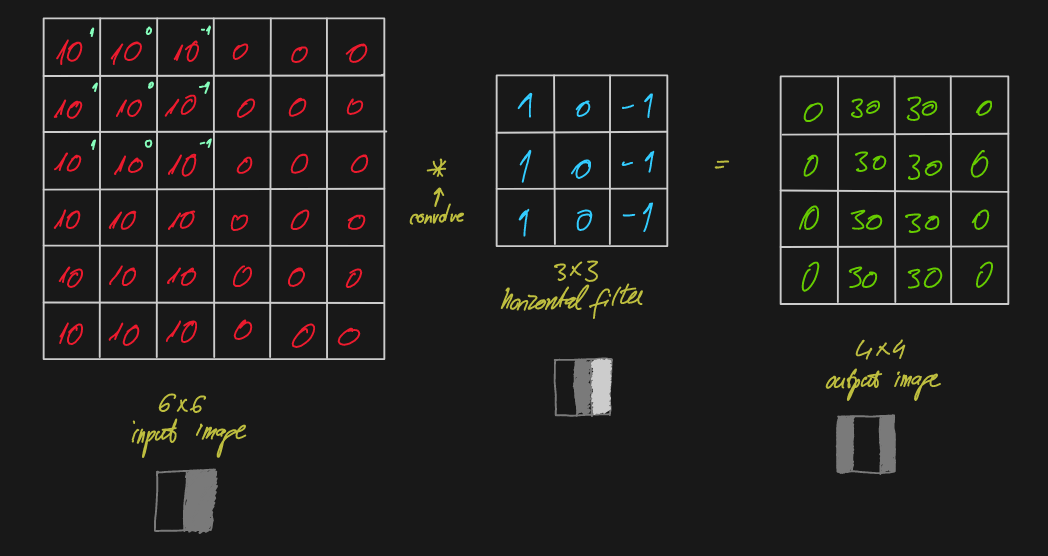 10 1 10 0 10 -1 0 0 0
10 1 10 0 10 -1 0 0 0
10 1 10 0 10 -1 0 0 0
10 10 10 0 0 0
10 10 10 0 0 0
10 10 10 0 0 0
6×6
input image
*
↑
convolve
1 0 -1
1 0 -1
1 0 -1
3×3
horizontal filter
=
0 30 30 0
0 30 30 0
0 30 30 0
0 30 30 0
4×4
output image